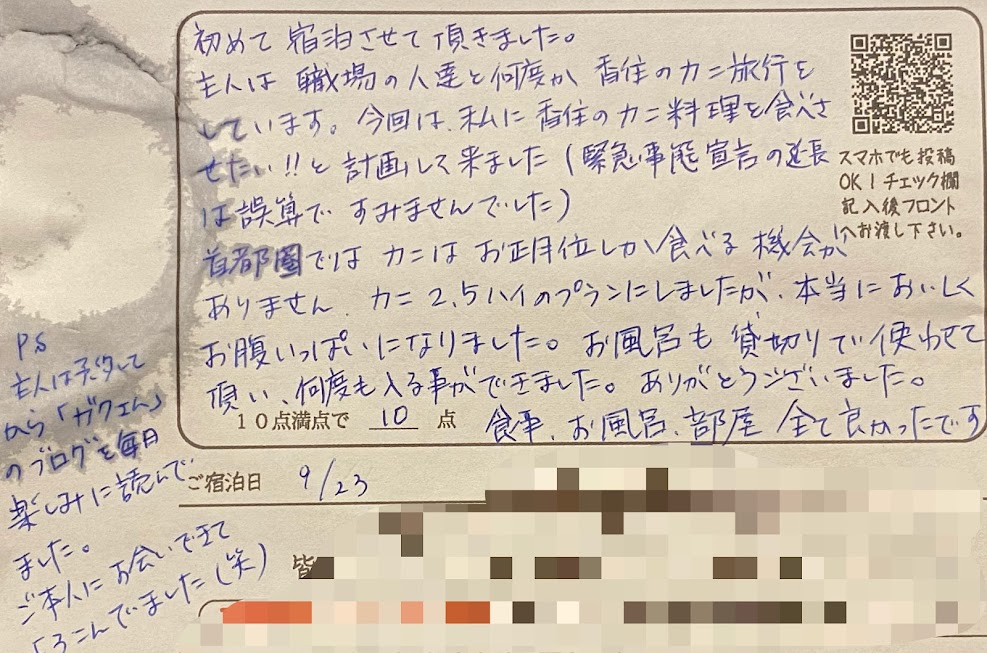 初めて宿泊させて頂きました。
主人は職場の人達と何度か香住のカニ旅行を
しています。今回は、私に香住のカニ料理を食べさ
せたい!!と計画して来ました(緊急事態宣言の延長
は誤算ですみませんでした)
首都圏ではカニはお正月位しか食べる機会が
ありません。カニ2,5ハイのプランにしましたが、本当においしく
お腹いっぱいになりました。お風呂も貸切りで使わせて
頂い、何度も入る事ができました。ありがとうございました。
10点満点で 10 点
食事、お風呂、部屋全て良かったです
スマホでも投稿
OK!チェック欄
記入後フロント
へお渡し下さい。
ご宿泊日 9/23
皆
PS
主人は予約して
から「ガクエん」
のブログを毎日
楽しみに読んで
ました。
ご本人にお会いできて
よろこんでました(笑)